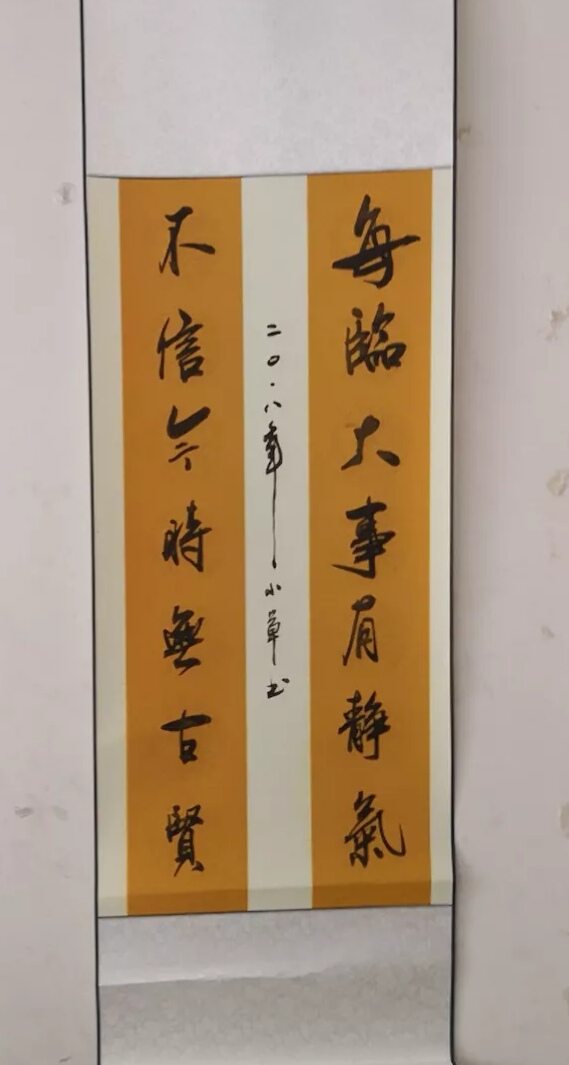 每臨大事有靜氣
不信今時無古賢
二〇一八年小草書